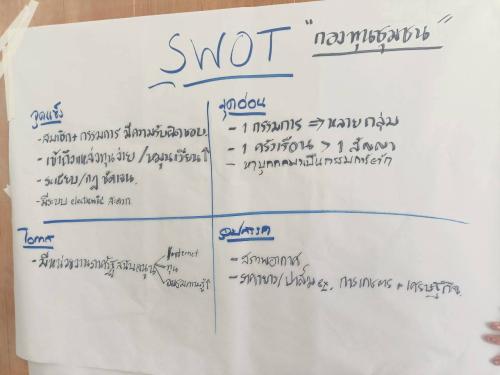 SWOT "กองทุนชุมชน"
จุดแข็ง
- สมาชิก+กรรมการ มีความรับผิดชอบ
- เข้าถึงแหล่งทุนง่าย/หมุนเวียน↑
- ระเบียบ/กฎ ชัดเจน
- มีระบบ electronic สะดวก
จุดอ่อน
- 1 กรรมการ ⇒ หลายกลุ่ม
- 1 ครัวเรือน > 1 สัญญา
- หาบุคคลมาเป็นกรรมการยาก
โอกาส
- มีหน่วยงานภาครัฐสนับสนุน
Internet
ทุน
อบรมความรู้
อุปสรรค
- สภาพอากาศ
- ราคายาง/ปาล์ม การเกษตร + เศรษฐกิจ